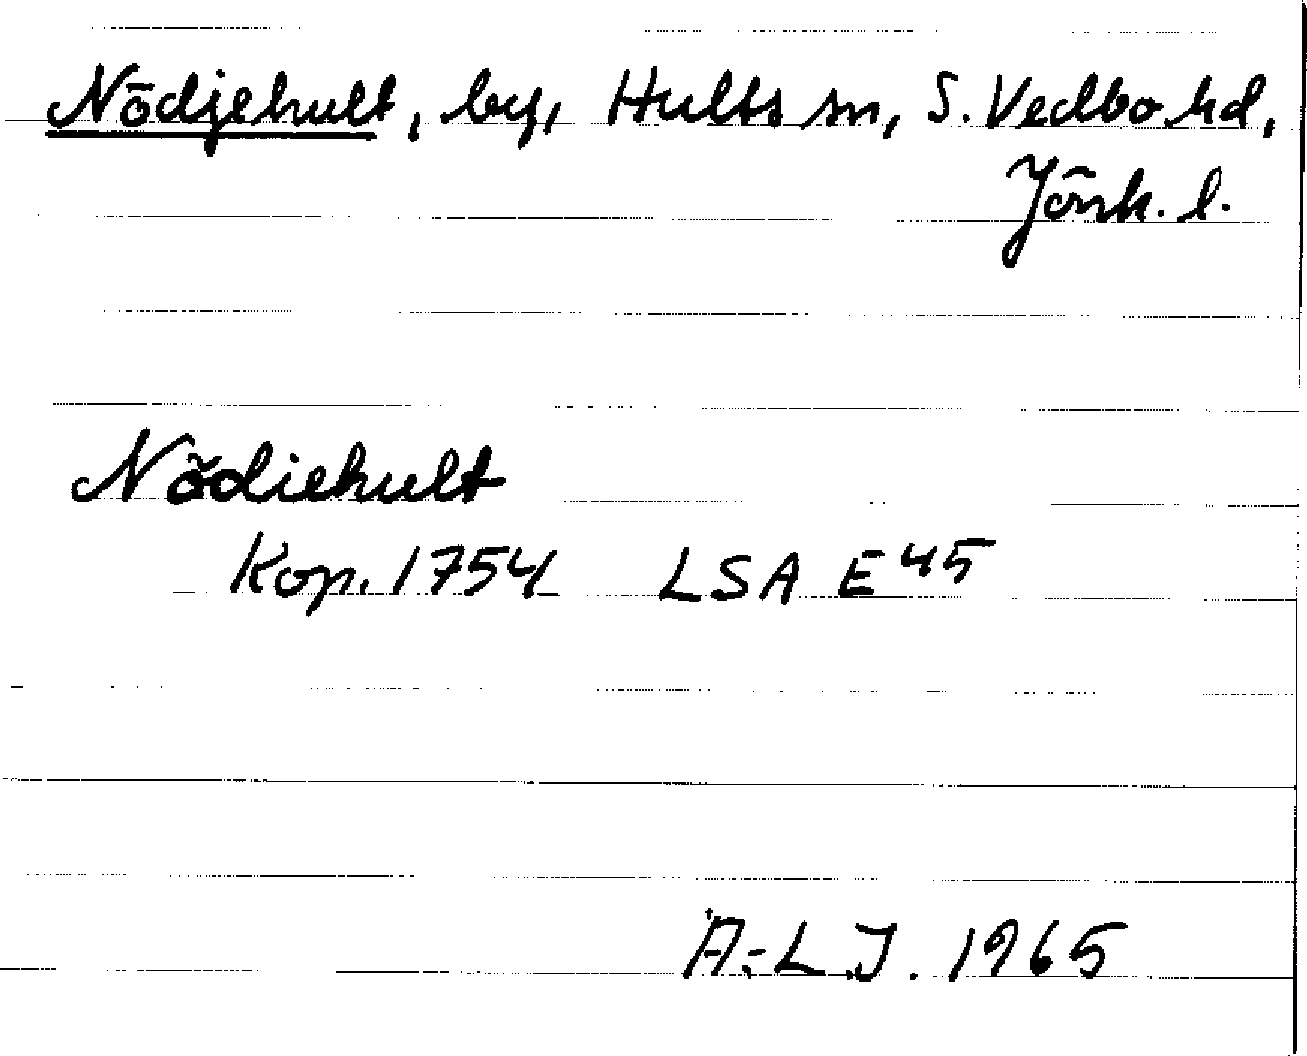 Nödjehult, by, Hults sn, S. Vedbo hd,
Jönk. l.
Nödiehult
Kop. 1754 LSA E 45
A-L J. 1965